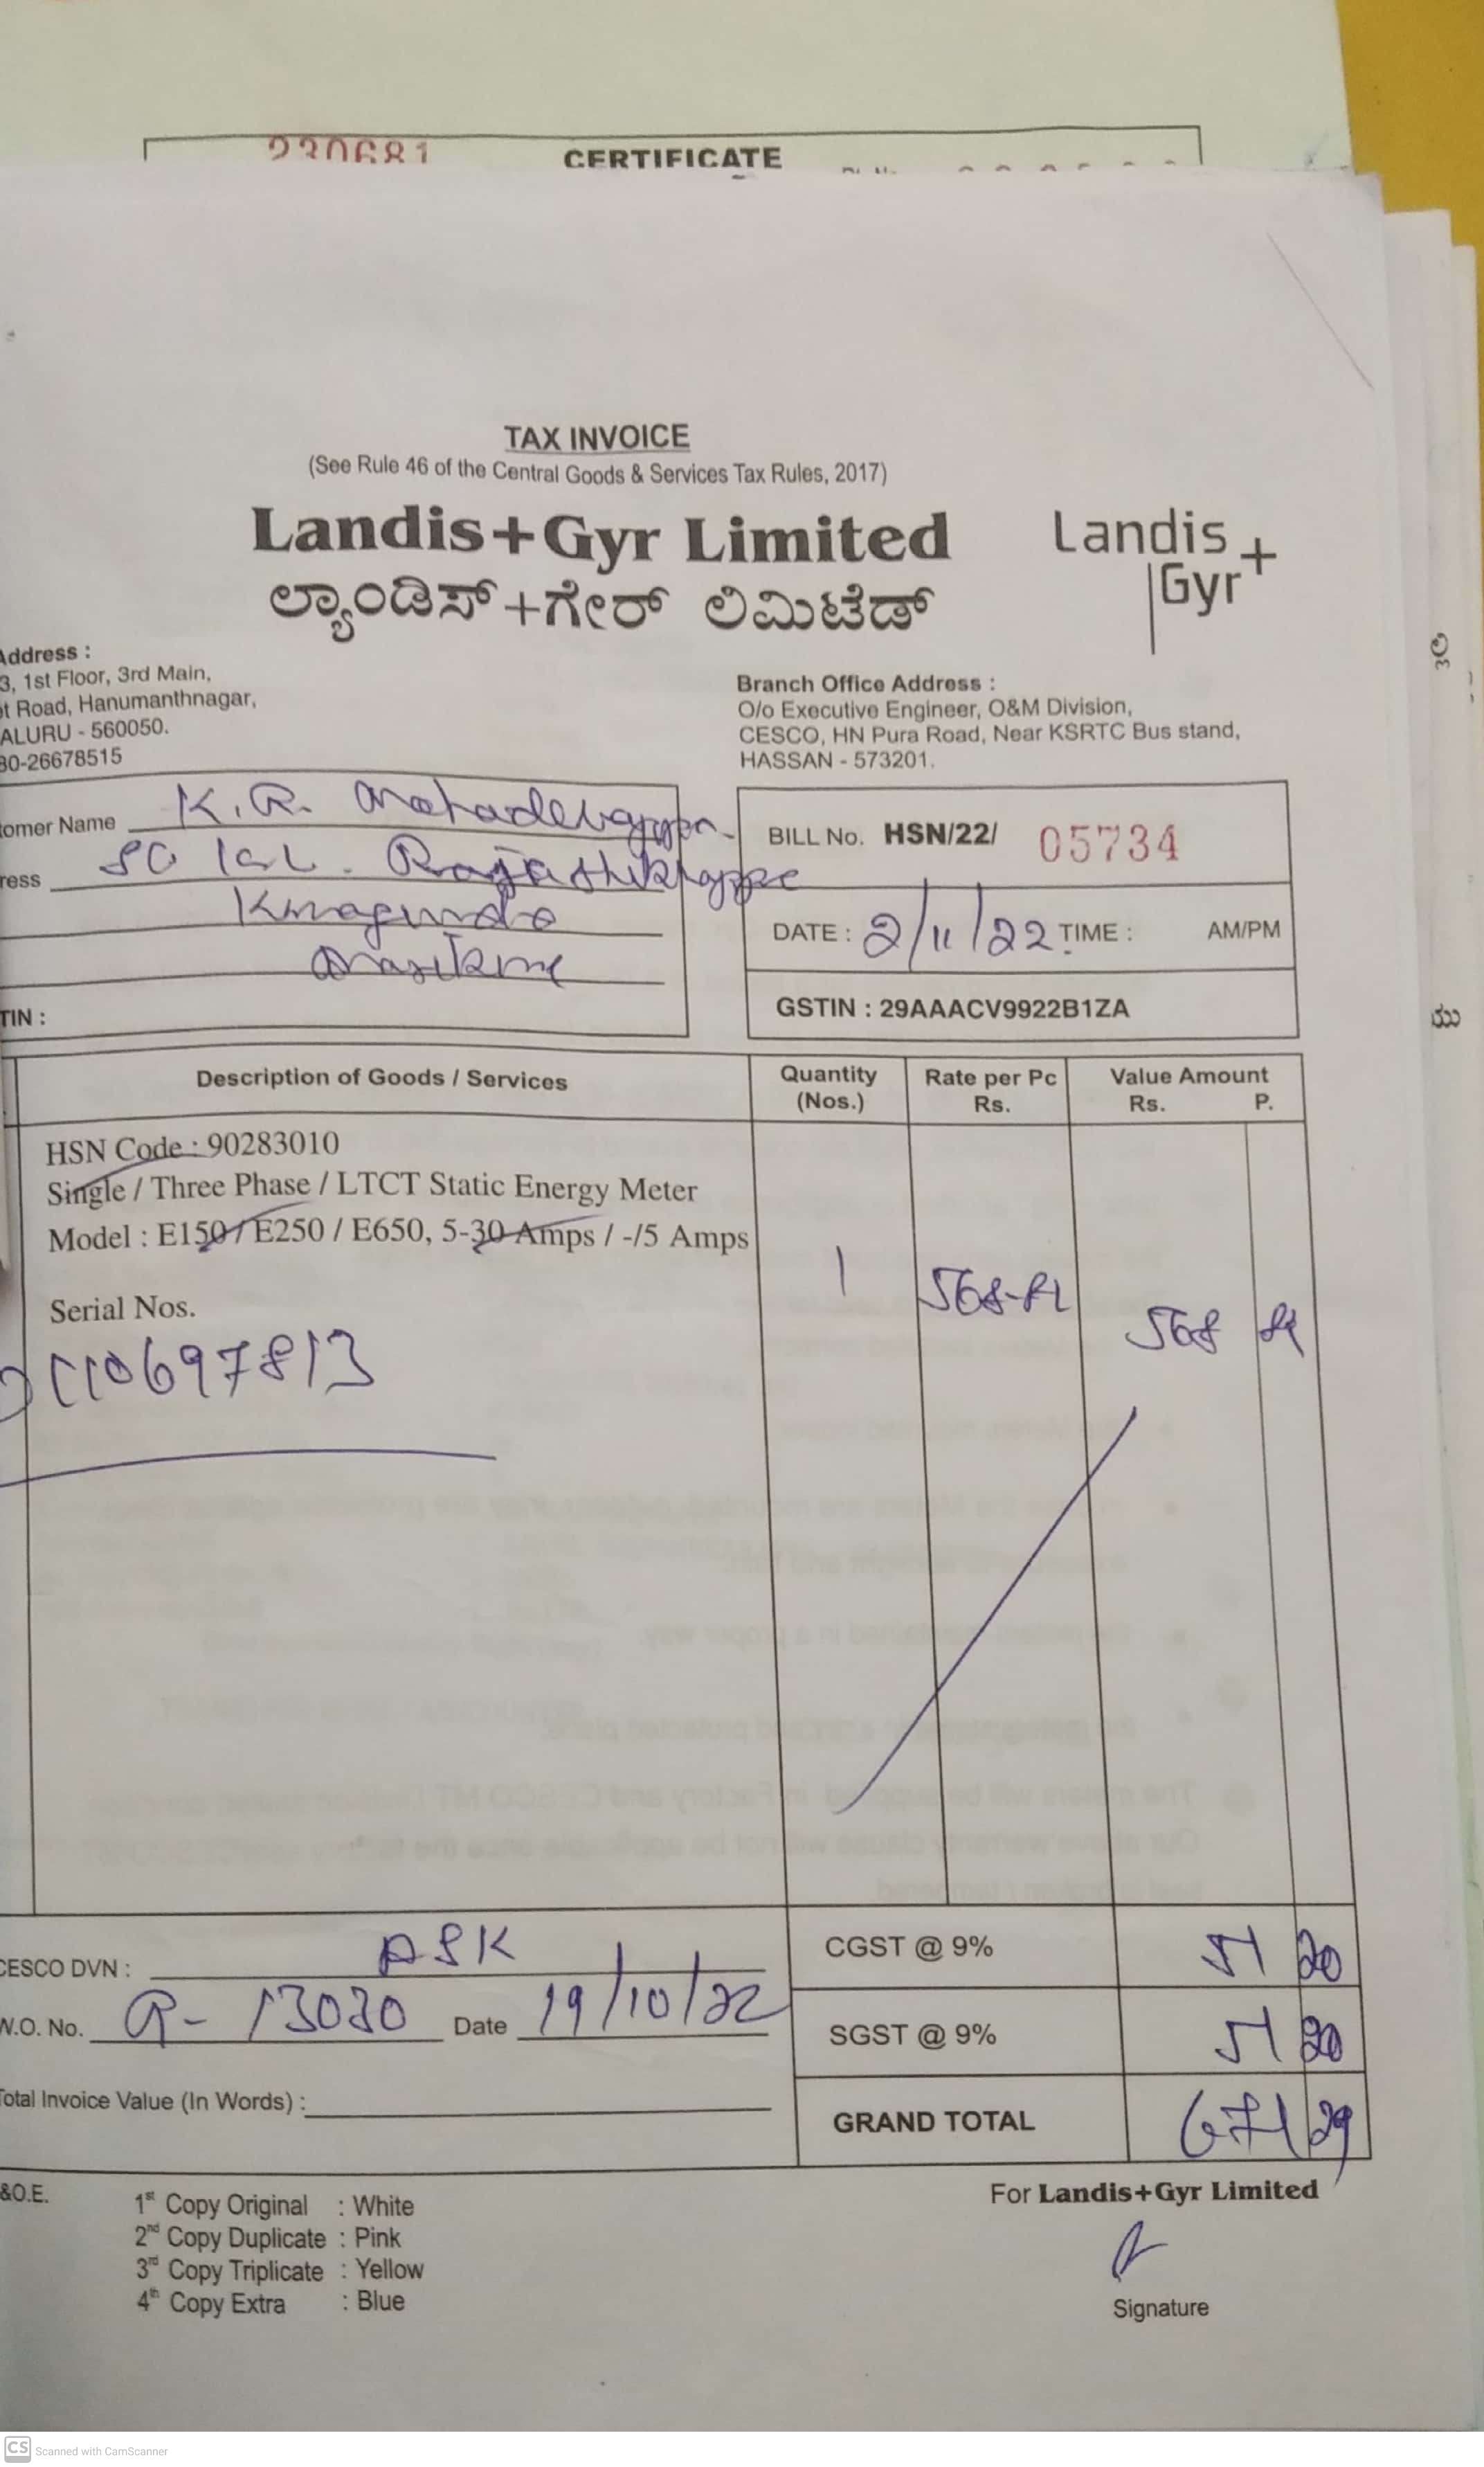 230681 CERTIFICATE
TAX INVOICE
(See Rule 46 of the Central Goods & Services Tax Rules, 2017)
Landis+Gyr Limited
ಲ್ಯಾಂಡಿಸ್+ಗೇರ್ ಲಿಮಿಟೆಡ್
Landis+
Gyr
Address :
3, 1st Floor, 3rd Main,
t Road, Hanumanthnagar,
ALURU - 560050.
80-26678515
Branch Office Address :
O/o Executive Engineer, O&M Division,
CESCO, HN Pura Road, Near KSRTC Bus stand,
HASSAN - 573201.
tomer Name K.R. Mahadevappa
ress
TIN :
BILL No. HSN/22/ 05734
DATE : 2/11/22 TIME : AM/PM
GSTIN : 29AAACV9922B1ZA
Description of Goods / Services Quantity (Nos.) Rate per Pc Rs. Value Amount Rs. P.
HSN Code : 90283010
Single / Three Phase / LTCT Static Energy Meter
Model : E150 / E250 / E650, 5-30 Amps / -/5 Amps
1 568
568
Serial Nos.
10697813
CESCO DVN : ASK
W.O. No. R- 13030 Date 19/10/22
Total Invoice Value (In Words) :
CGST @ 9% 51 20
SGST @ 9% 51 20
GRAND TOTAL 671 29
&O.E.
1st Copy Original : White
2nd Copy Duplicate : Pink
3rd Copy Triplicate : Yellow
4th Copy Extra : Blue
For Landis+Gyr Limited
Signature
CS Scanned with CamScanner